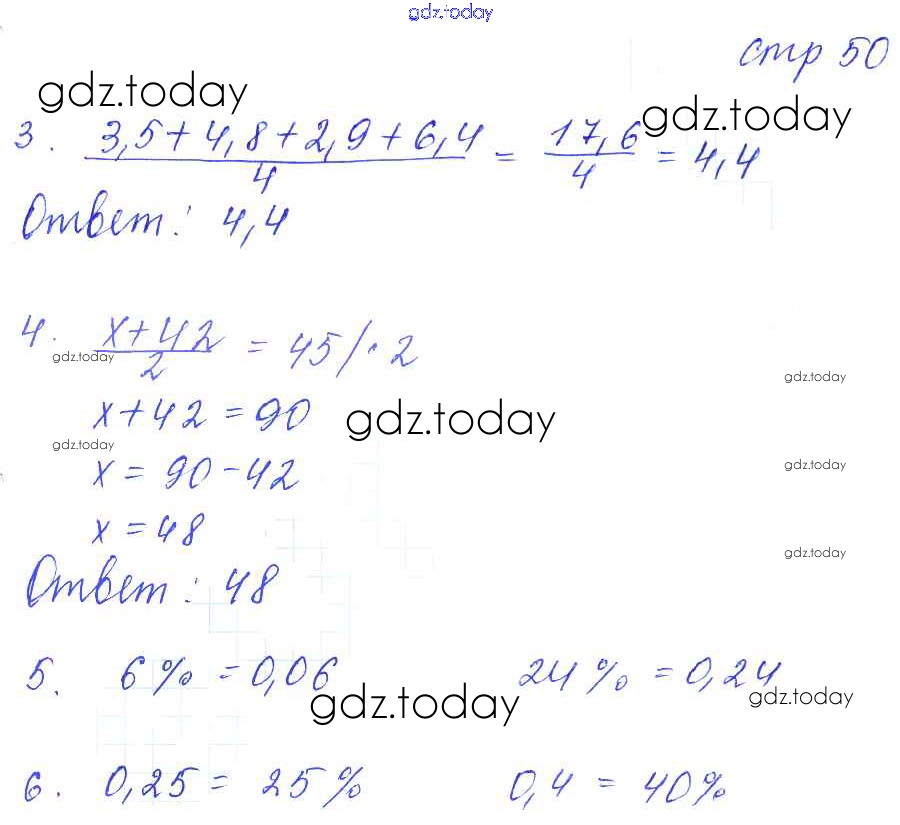 gdz.today
стр 50
gdz.today
gdz.today
3. (3,5+4,8+2,9+6,4)/4 = 17,6/4 = 4,4
Ответ: 4,4
4. (x+42)/2 = 45 /·2
gdz.today
gdz.today
x+42 = 90
gdz.today
gdz.today
gdz.today
x = 90-42
x = 48
gdz.today
Ответ: 48
5. 6% = 0,06 24% = 0,24
gdz.today
gdz.today
6. 0,25 = 25% 0,4 = 40%